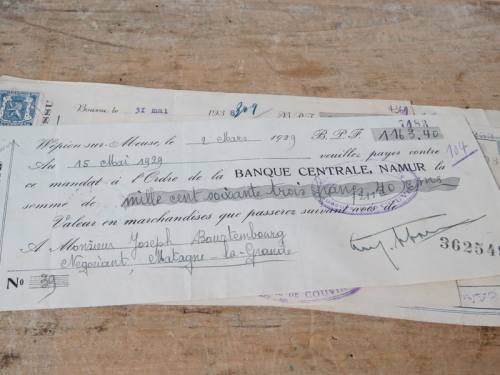 Bousse, le 31 mai 193
309
4361
Wépion-sur-Meuse, le 2 Mars 1929 B.P.F. 1163,40
Au 15 Mai 1929 veuillez payer contre
104
ce mandat à l'Ordre de la BANQUE CENTRALE, NAMUR la
somme de mille cent soixante trois francs, 40 cms
Valeur en marchandises que passerez suivant avis de
A Monsieur Joseph
Négociant, Matagne-la-Grande
362549
No 39
DE COUVIN